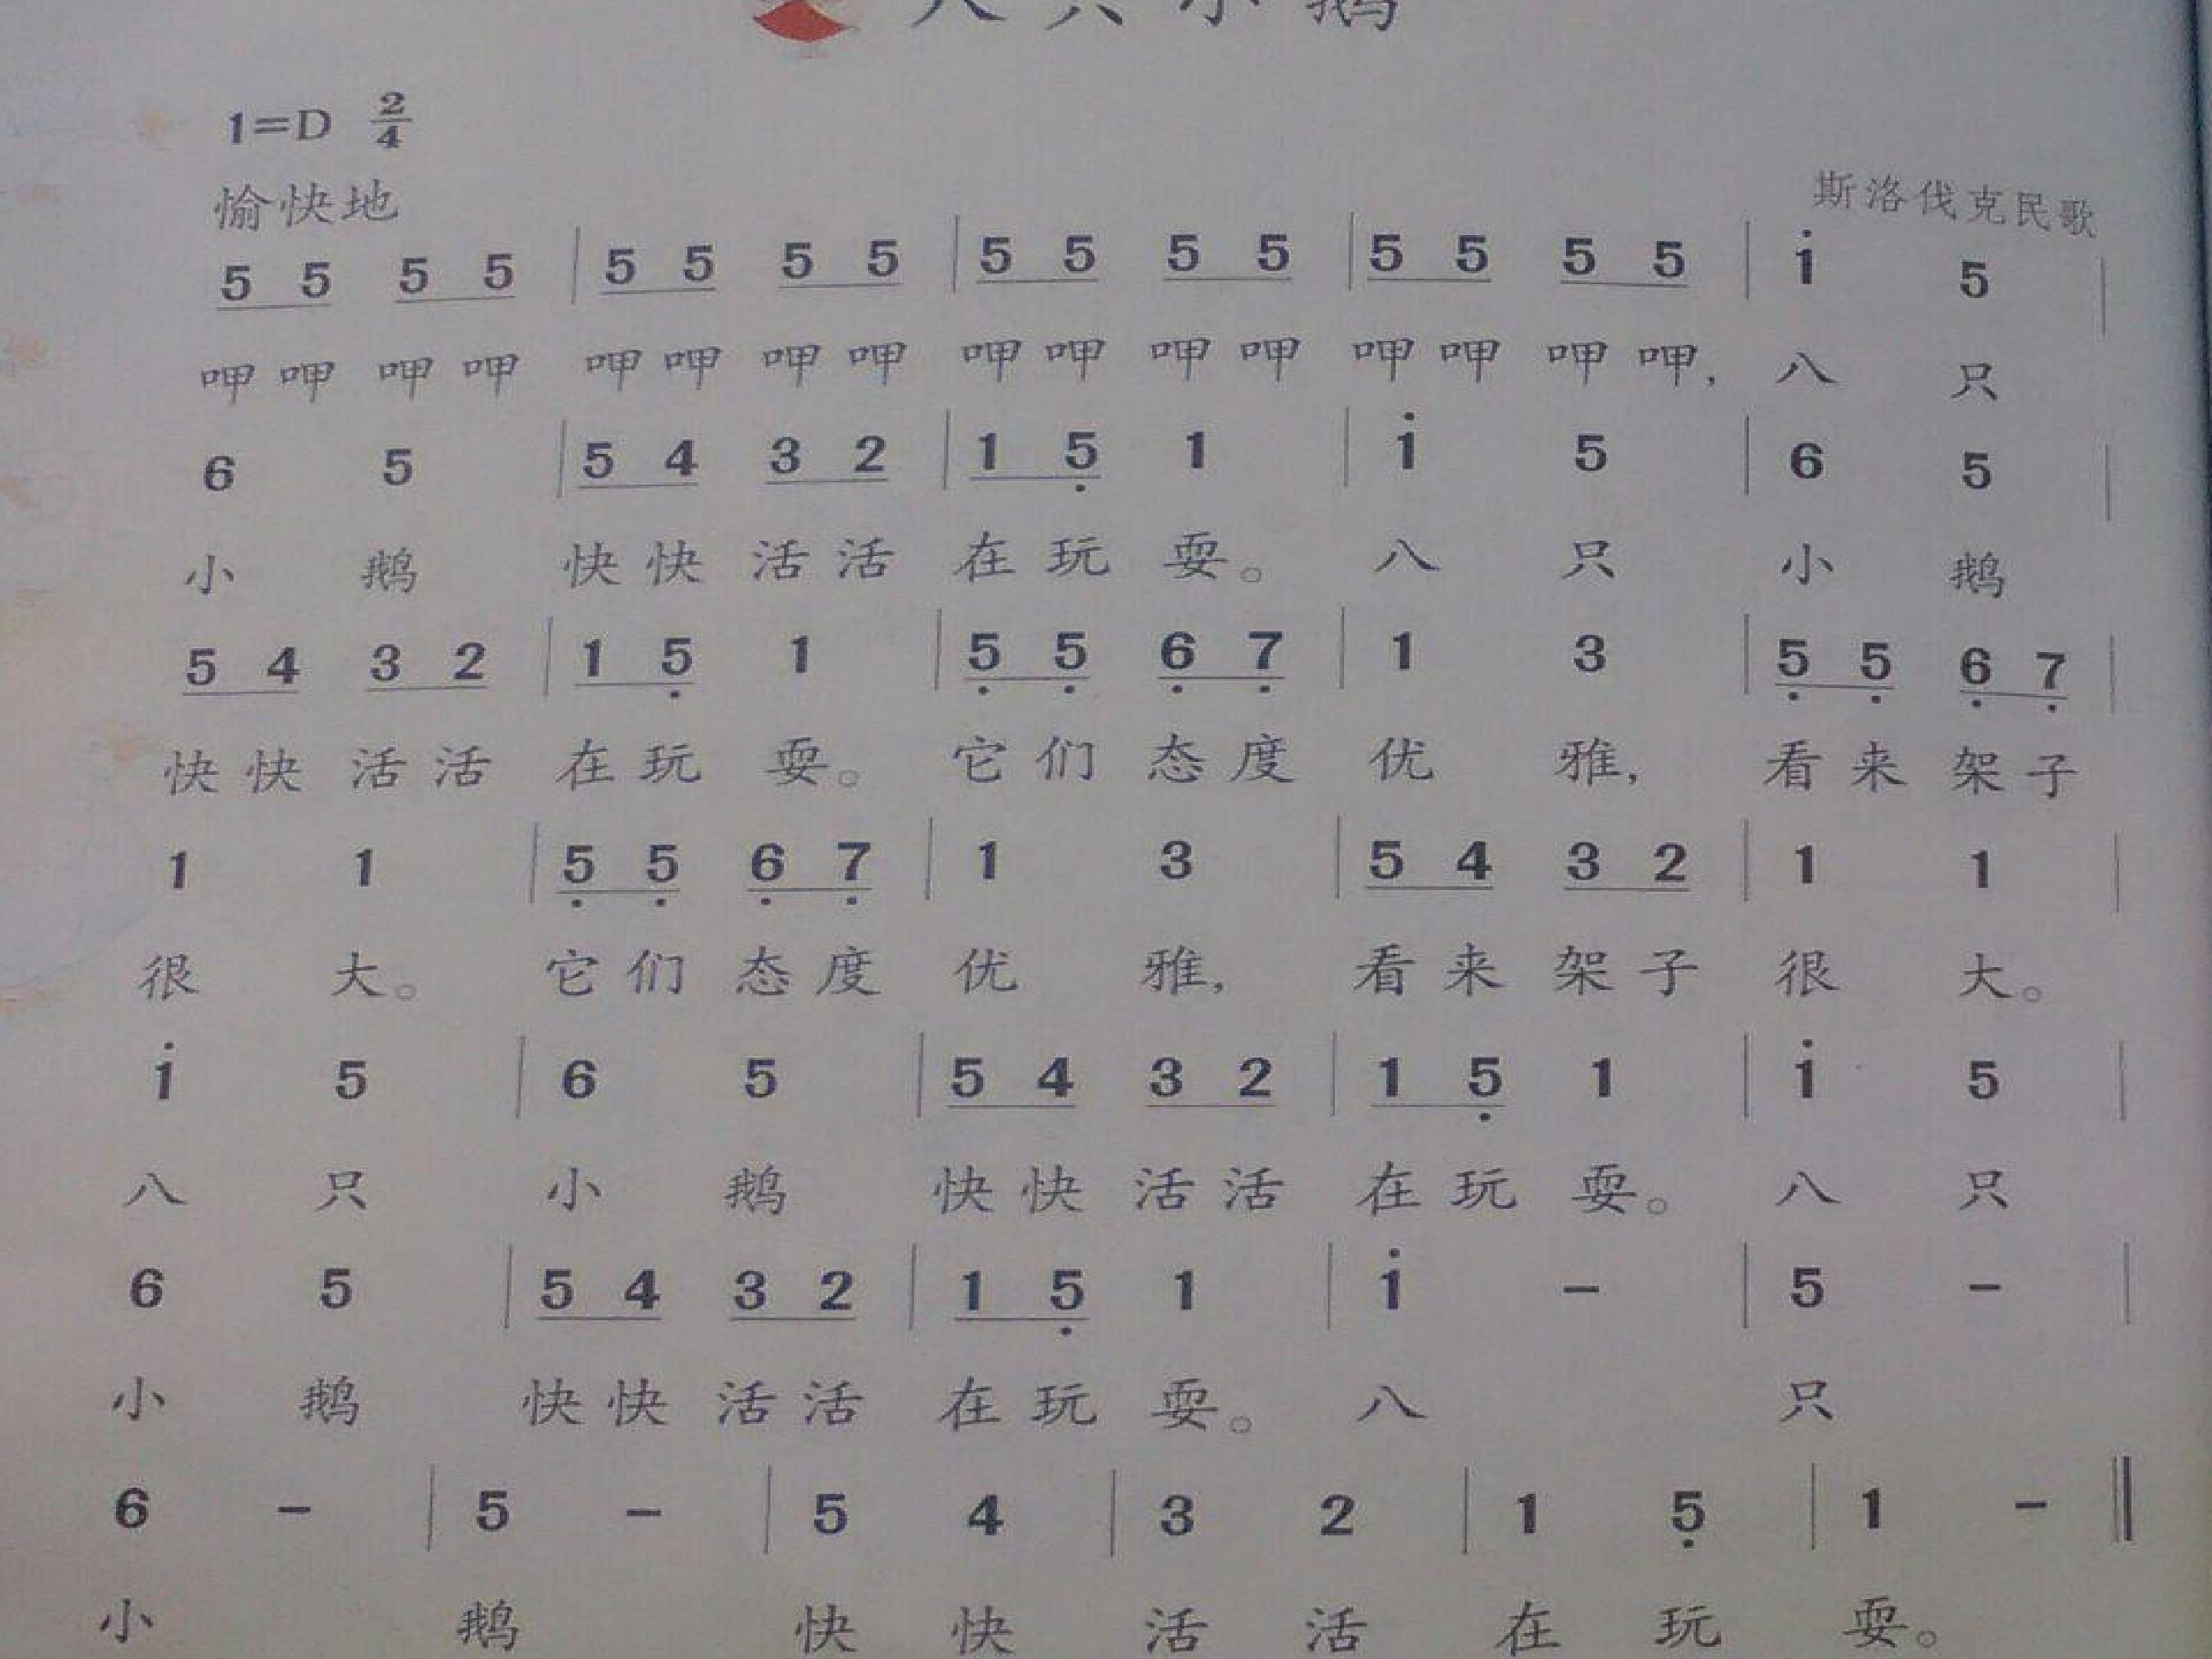 八只小鹅
1=D 2/4
愉快地
斯洛伐克民歌
5 5 5 5 | 5 5 5 5 | 5 5 5 5 | 5 5 5 5 | i 5 |
呷呷 呷呷 呷呷 呷呷 呷呷 呷呷 呷呷 呷呷, 八 只
6 5 | 5 4 3 2 | 1 5̣ 1 | i 5 | 6 5 |
小 鹅 快快 活活 在玩 耍。 八 只 小 鹅
5 4 3 2 | 1 5̣ 1 | 5̣ 5̣ 6̣ 7̣ | 1 3 | 5̣ 5̣ 6̣ 7̣ |
快快 活活 在玩 耍。 它们 态度 优 雅, 看来 架子
1 1 | 5̣ 5̣ 6̣ 7̣ | 1 3 | 5 4 3 2 | 1 1 |
很 大。 它们 态度 优 雅, 看来 架子 很 大。
i 5 | 6 5 | 5 4 3 2 | 1 5̣ 1 | i 5 |
八 只 小 鹅 快快 活活 在玩 耍。 八 只
6 5 | 5 4 3 2 | 1 5̣ 1 | i – | 5 – |
小 鹅 快快 活活 在玩 耍。 八 只
6 – | 5 – | 5 4 | 3 2 | 1 5̣ | 1 – ‖
小 鹅 快 快 活 活 在 玩 耍。